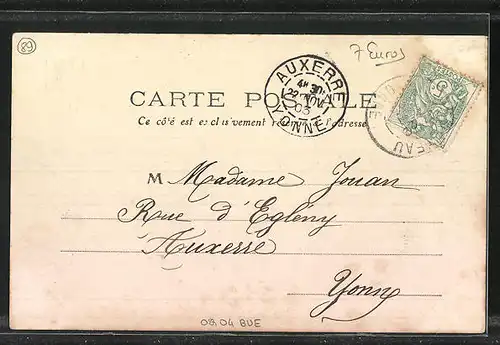 89
7 Euros
AUXERRE
4H 30
22 NOV
03
YONNE
CARTE POSTALE
Ce côté est exclusivement réservé à l'adresse
M Madame Jouan
Rue d'Egleny
Auxerre
Yonne
08 04 BUE